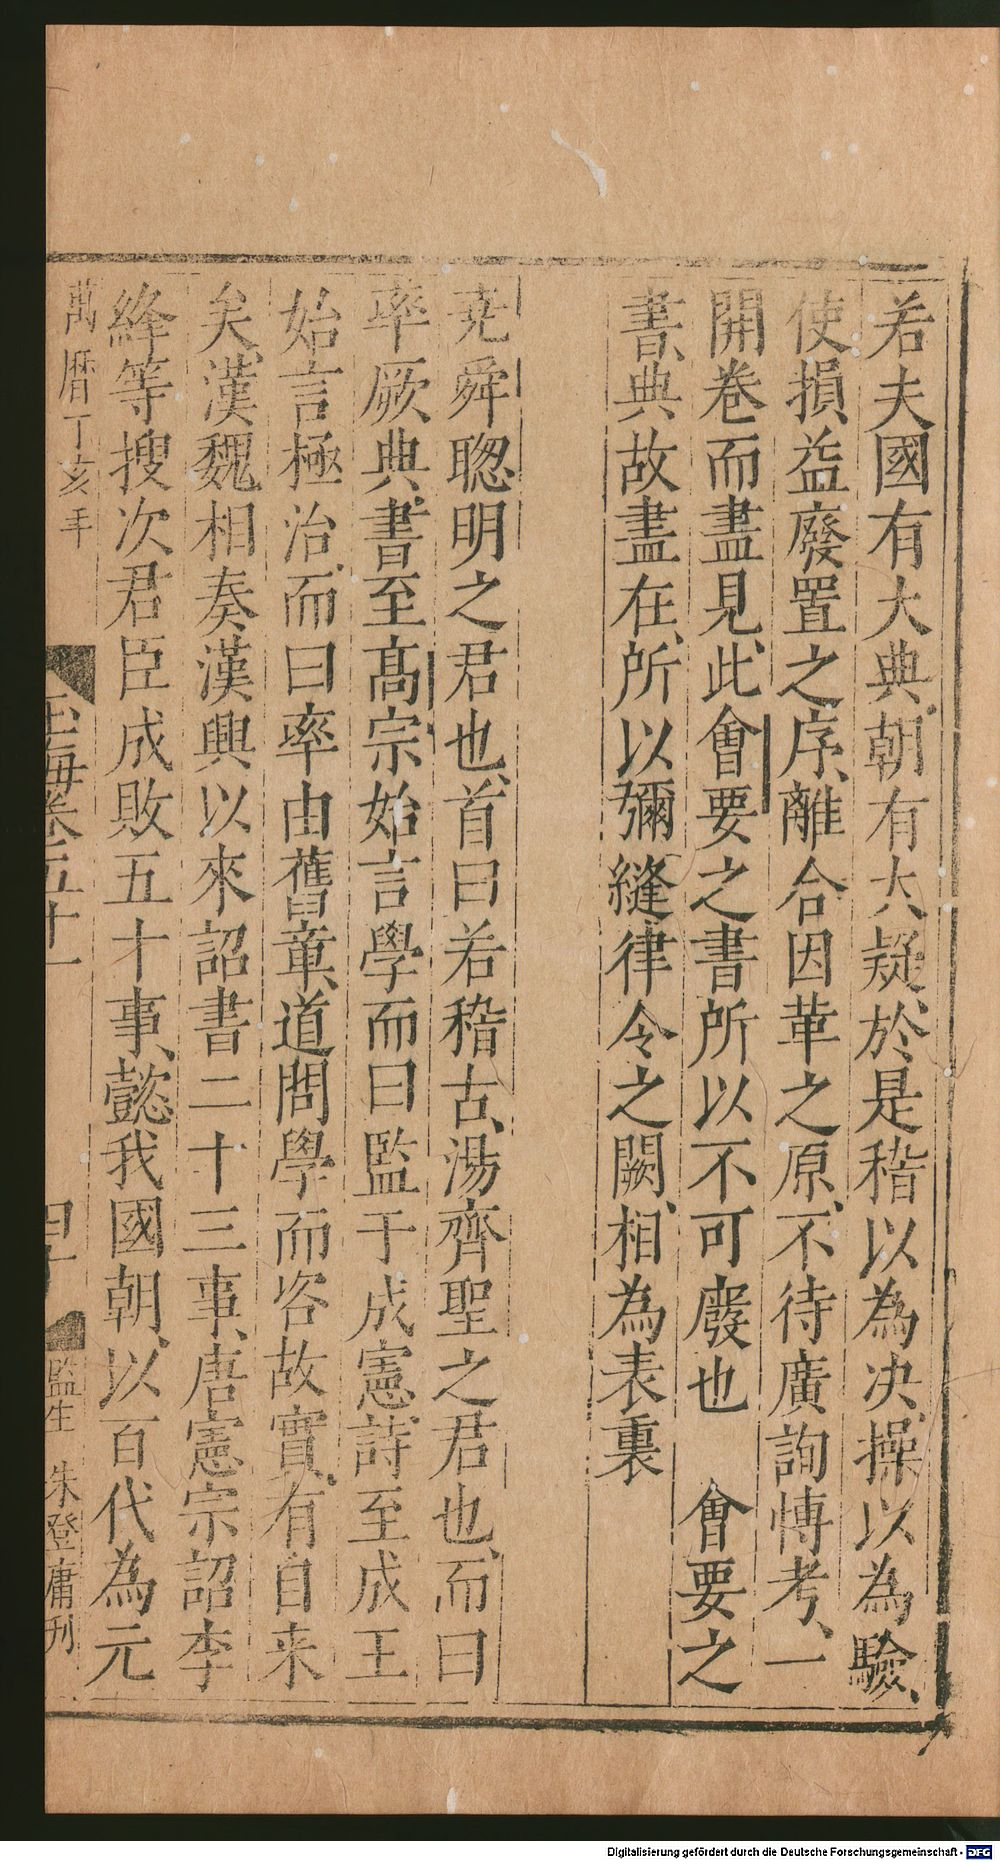 若夫國有大典、朝有大疑、於是稽以為决、操以為驗、
使損益廢置之序、離合因革之原、不待廣詢博考、一
開卷而盡見、此會要之書所以不可廢也　會要之
書、典故盡在、所以彌縫律令之闕、相為表裏
堯舜聰明之君也、首曰若稽古、湯齊聖之君也、而曰
率厥典、書至高宗始言學而曰監于成憲、詩至成王
始言極治、而曰率由舊章、道問學而咨故實、有自来
矣、漢魏相奏漢興以來詔書二十三事、唐憲宗詔李
絳等搜次君臣成敗五十事、懿我國朝、以百代為元
萬曆丁亥年
玉海卷五十一
四十
監生　朱登庸刊
Digitalisierung gefördert durch die Deutsche Forschungsgemeinschaft - DFG